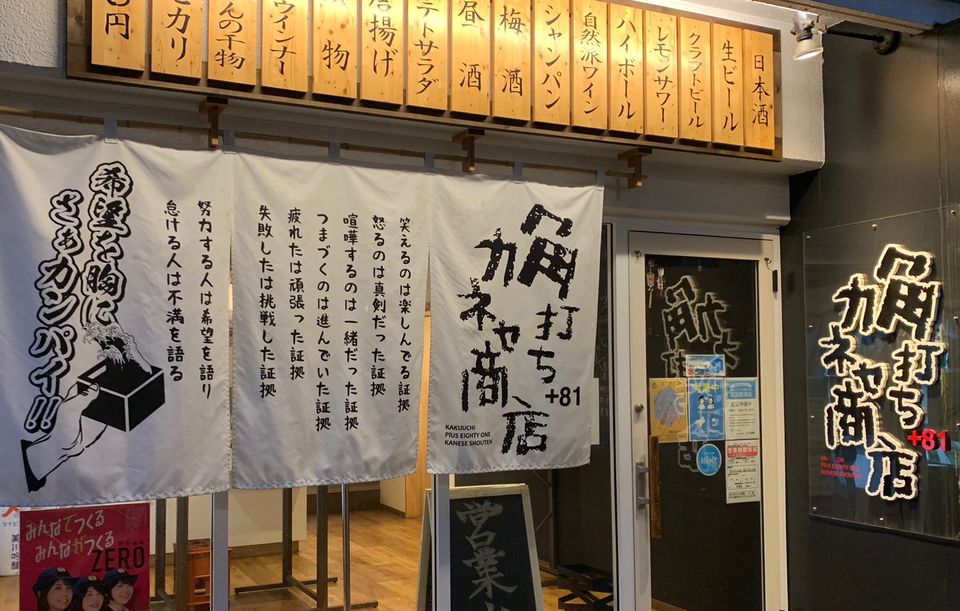 日本酒
生ビール
クラフトビール
レモンサワー
ハイボール
自然派ワイン
シャンパン
梅酒
昼酒
テトサラダ
揚げ
物
ウインナー
んの干物
セカリ
円
角打ち
カネセ商店
+81
KAKUUCHI
PIUS EIGHTY ONE
KANESE SHOUTEN
笑えるのは楽しんでる証拠
怒るのは真剣だった証拠
喧嘩するのは一緒だった証拠
つまづくのは進んでいた証拠
疲れたは頑張った証拠
失敗したは挑戦した証拠
努力する人は希望を語り
怠ける人は不満を語る
希望を胸に
さぁカンパイ!!
角打ち
カネセ商店
+81
PIUS EIGHTY ONE
KANESE SHOUTEN
みんなでつくる
みんながつくる
ZERO
営業